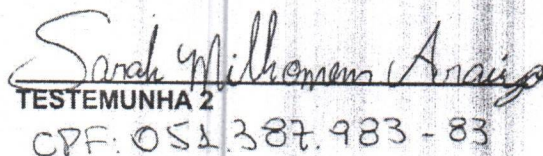 Sarah Milhomem Araújo
TESTEMUNHA 2
CPF: 051.387.983-83